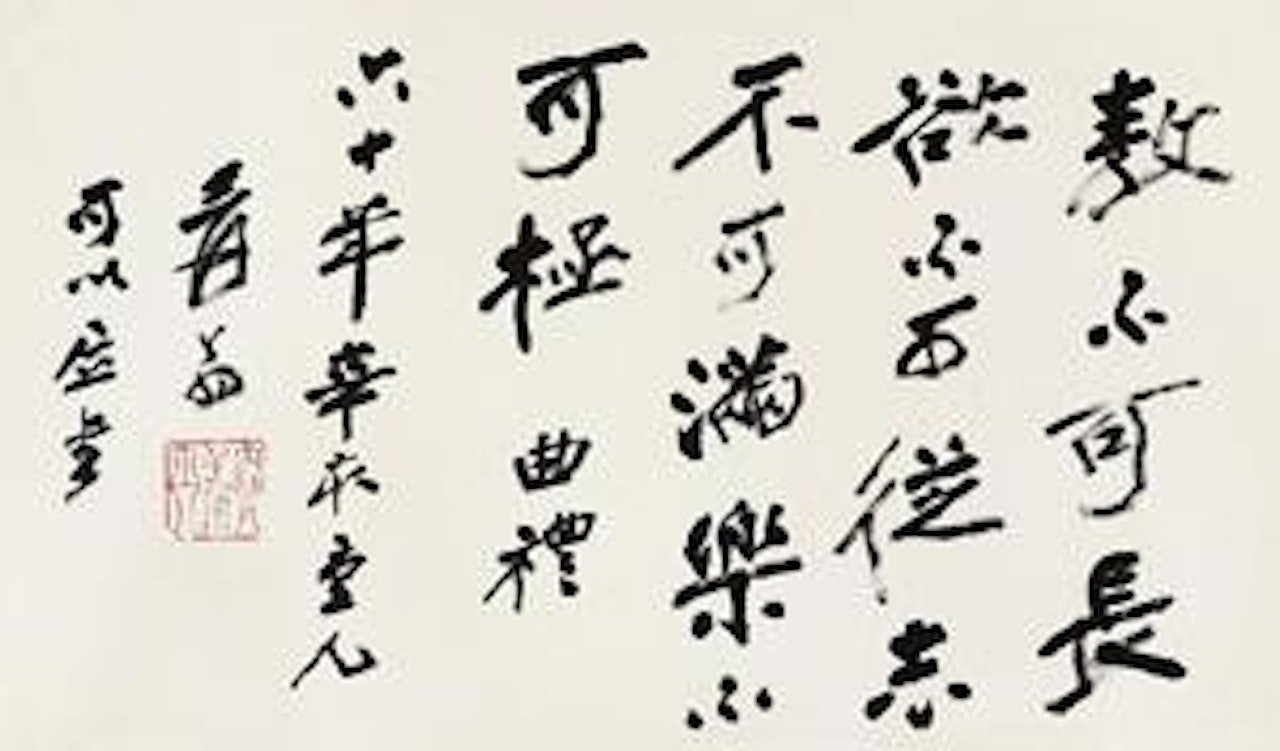 敖不可長
欲不可從志
不可滿樂不
可極 曲禮
六十年華
爰翁
可以